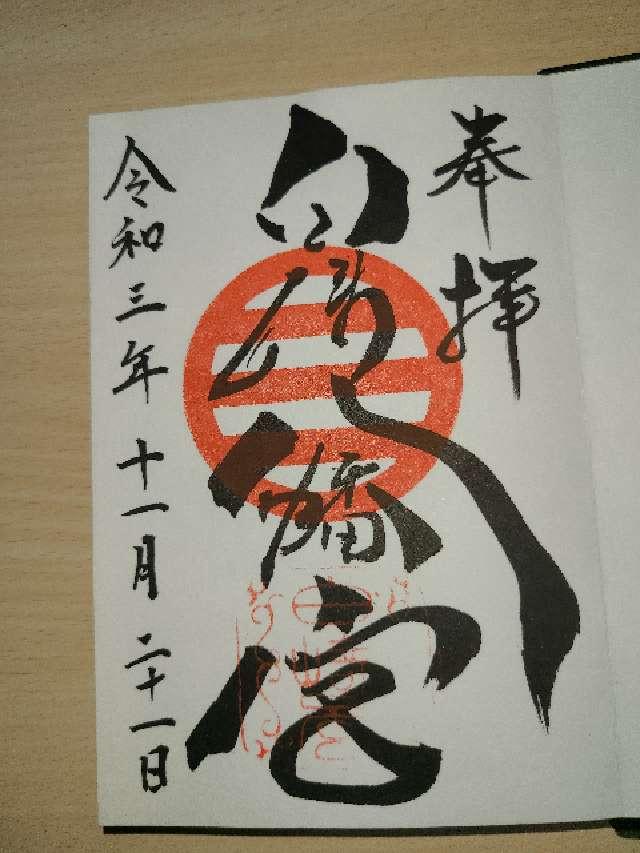 奉拝
白旗八幡宮
令和三年十一月二十一日